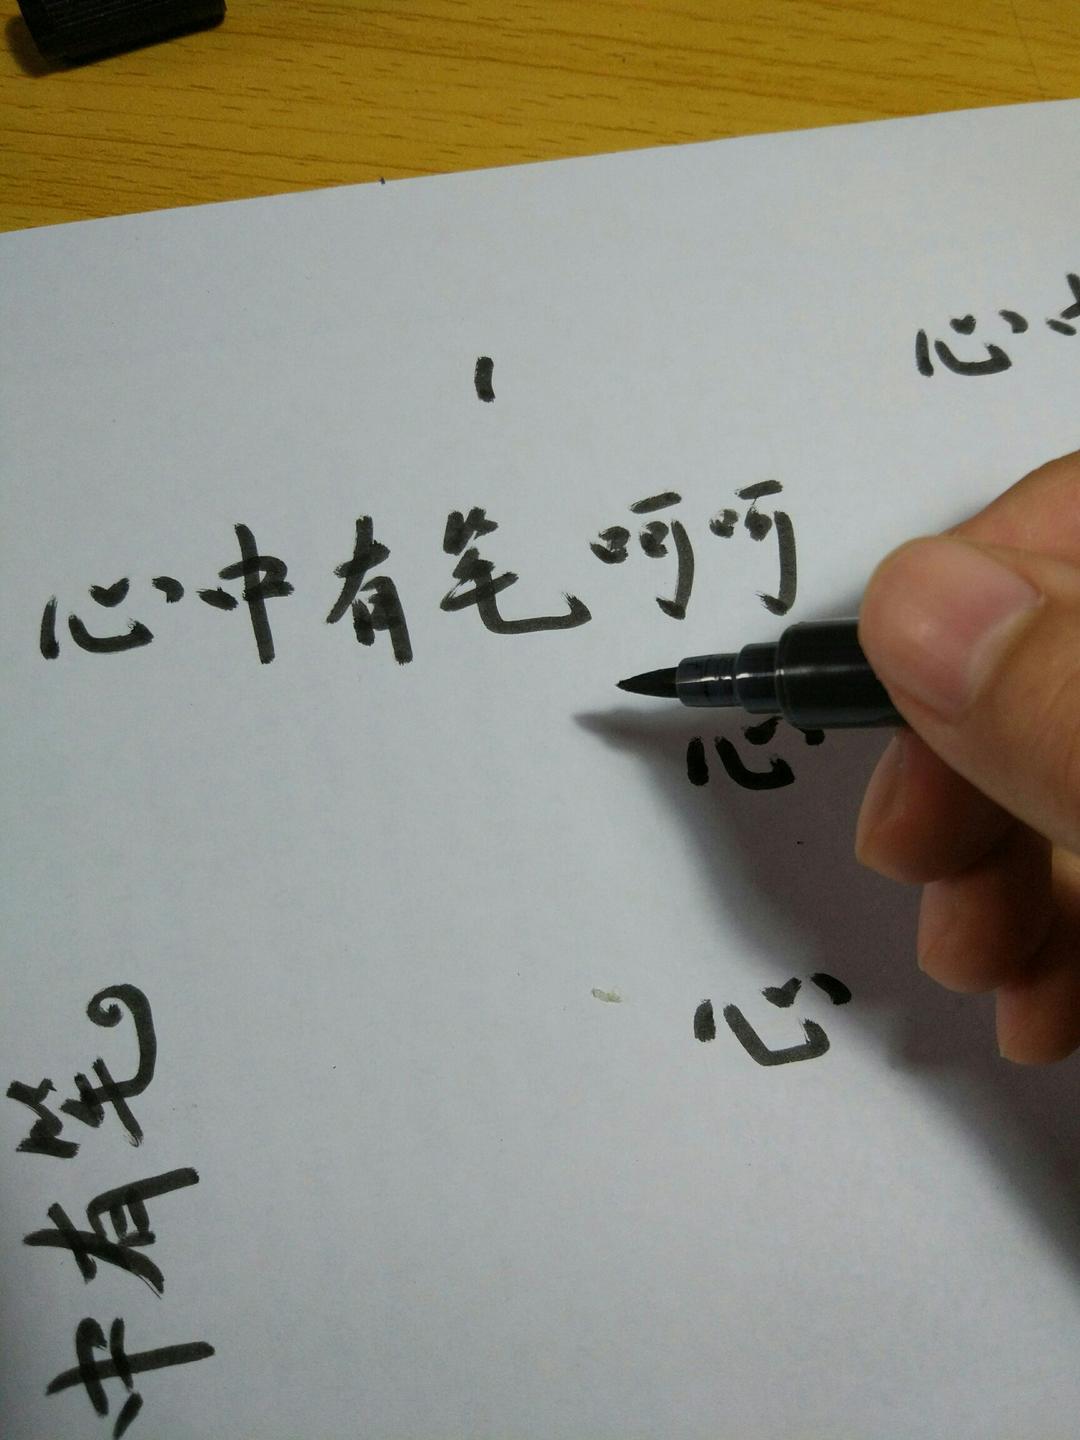 心
心中有笔呵呵
心
心
中有笔